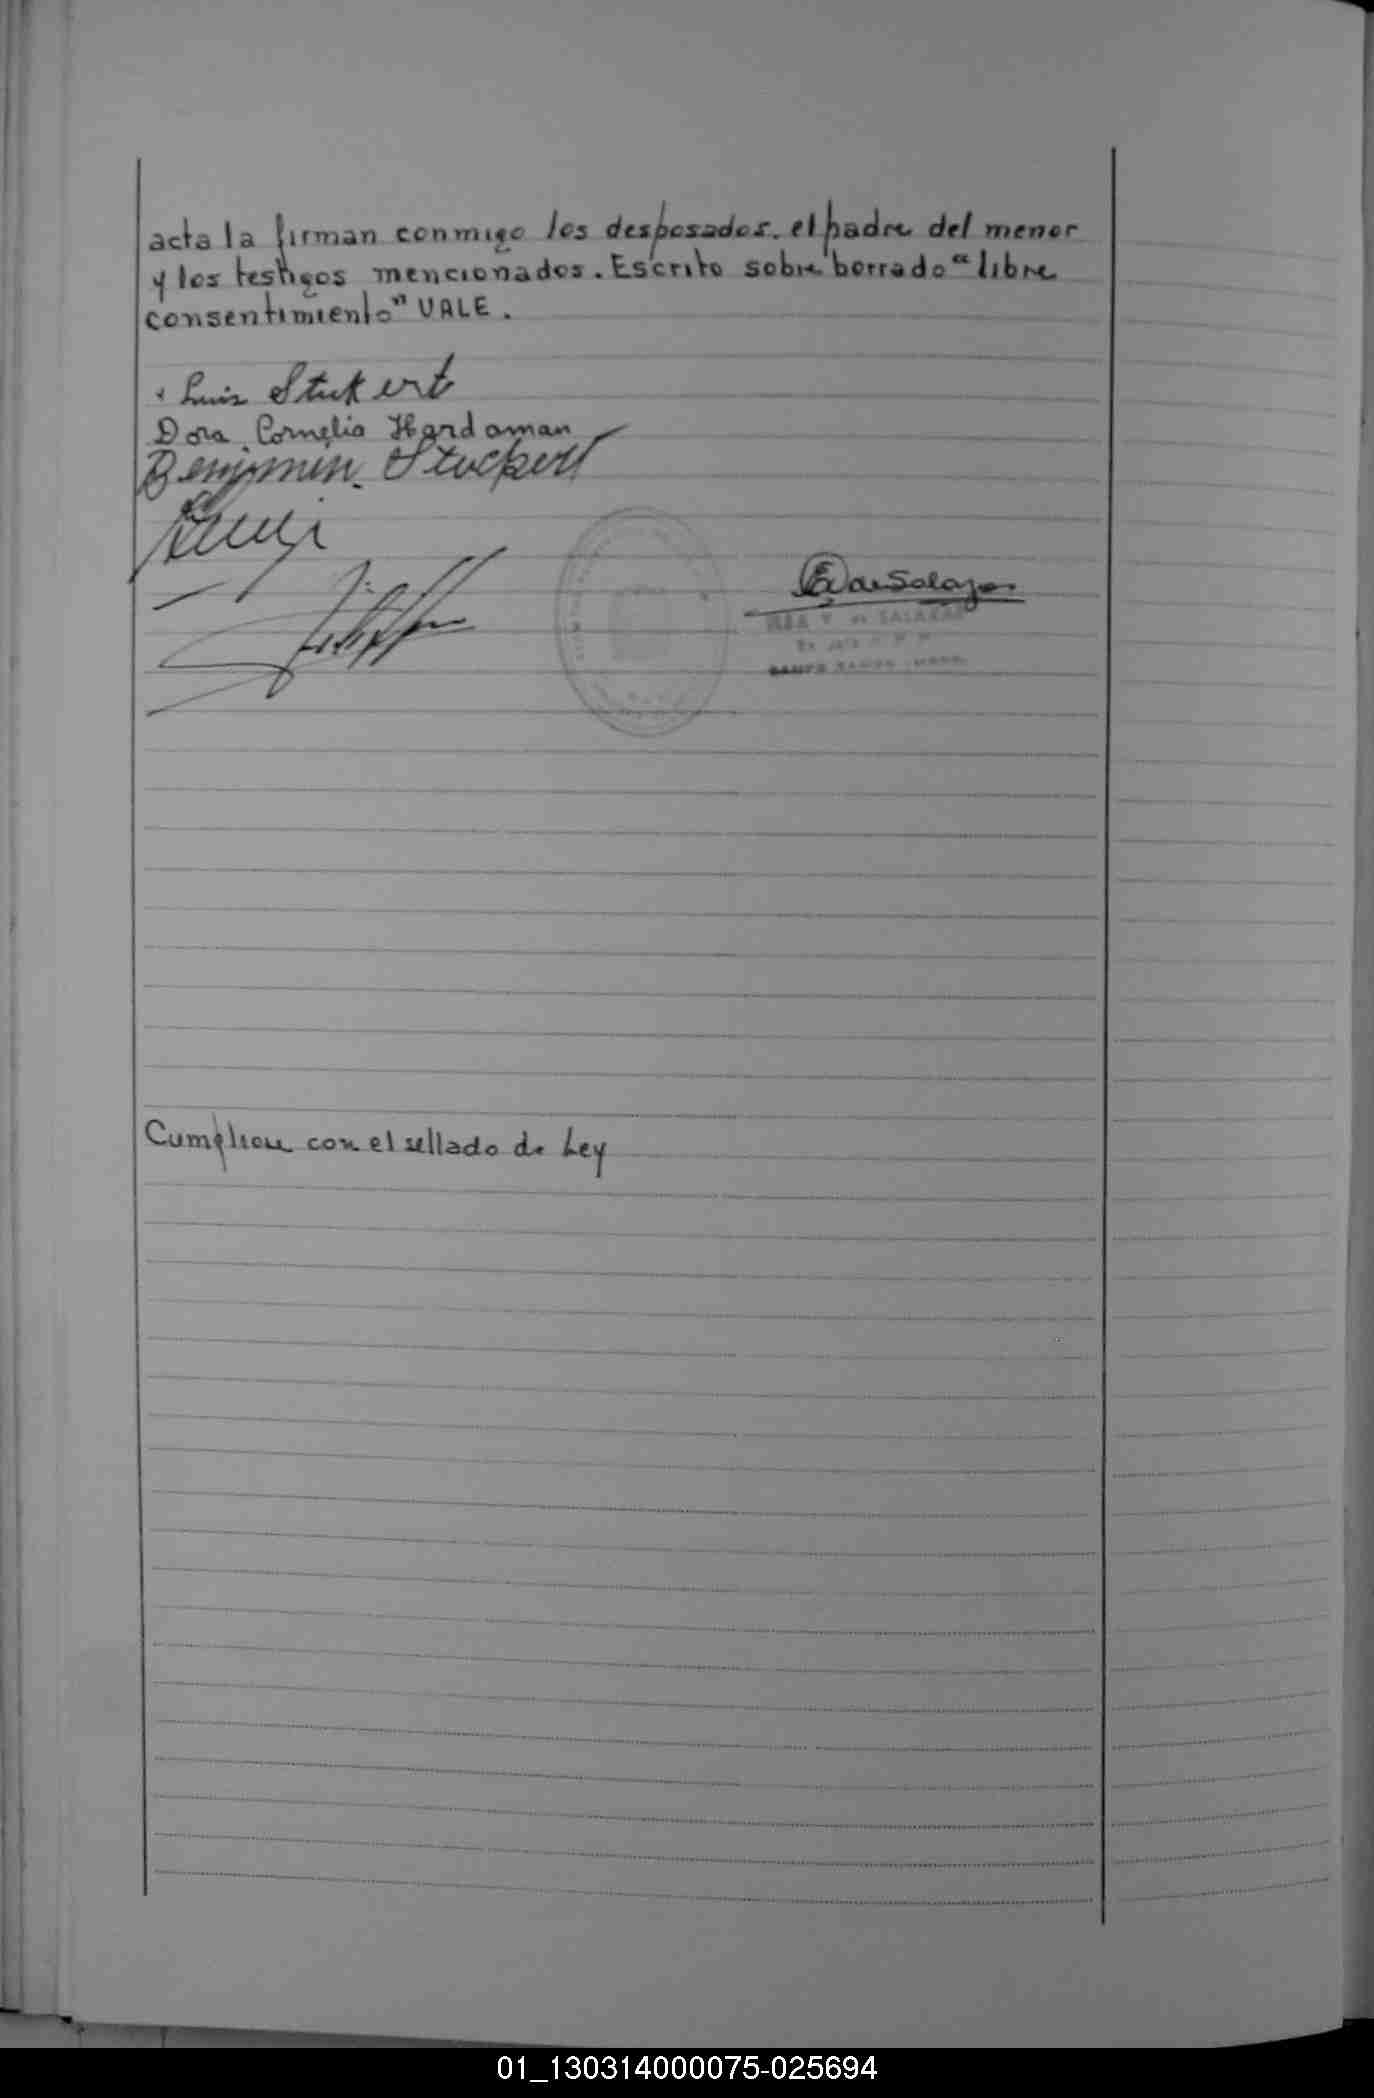 acta la firman conmigo los desposados. el padre del menor
y los testigos mencionados. Escrito sobre borrado "libre
consentimiento" VALE.
Luis Stukert
Dora Cornelia Hardaman
Benjamin Stuckert
de Salazar
de SALAZAR
Cumplieu con el sellado de Ley
01_130314000075-025694